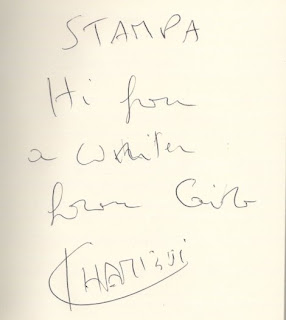 STAMPA
Hi from
a writer
from Cairo
KHAMISSI